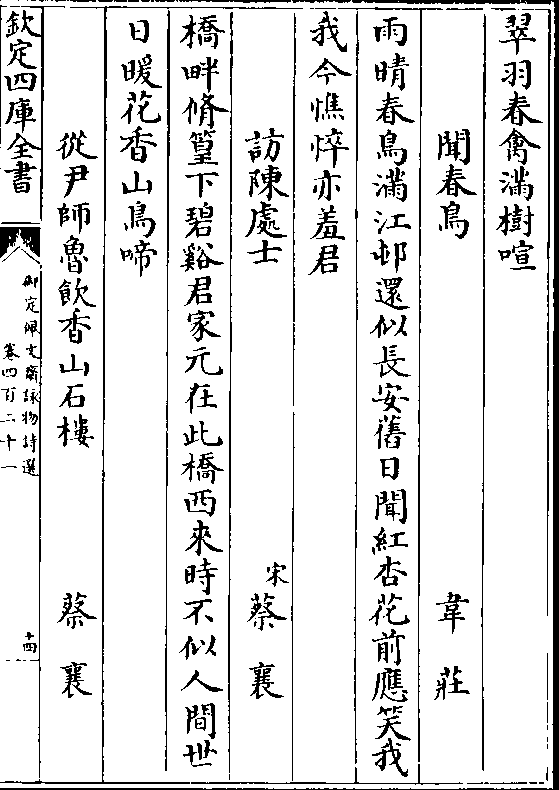 翠羽春禽滿樹喧
聞春鳥
韋莊
雨晴春鳥滿江邨還似長安舊日聞紅杏花前應笑我
我今憔悴亦羞君
訪陳處士
宋
蔡襄
橋畔脩篁下碧谿君家元在此橋西來時不似人間世
日暖花香山鳥啼
從尹師魯飲香山石樓
蔡襄
欽定四庫全書
御定佩文齋詠物詩選
卷四百二十一
十四